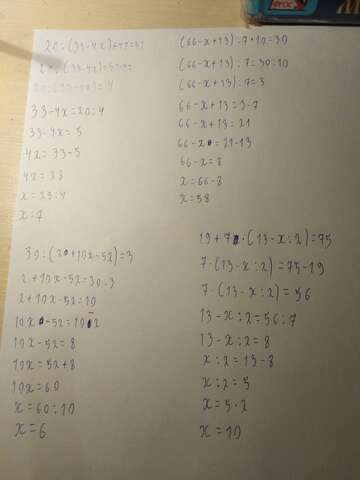 33-4x=20:4
33-4x=5
4x=33-5
4x=28
x=28:4
x=7
(66-x+13):7·10=30
(66-x+13):7=30:10
(66-x+13):7=3
66-x+13=3·7
66-x+13=21
66-x=21-13
66-x=8
x=66-8
x=58
30:(2+10x-52)=3
2+10x-52=30:3
2+10x-52=10
10x-52=10-2
10x-52=8
10x=52+8
10x=60
x=60:10
x=6
19+7·(13-x:2)=75
7·(13-x:2)=75-19
7·(13-x:2)=56
13-x:2=56:7
13-x:2=8
x:2=13-8
x:2=5
x=5·2
x=10